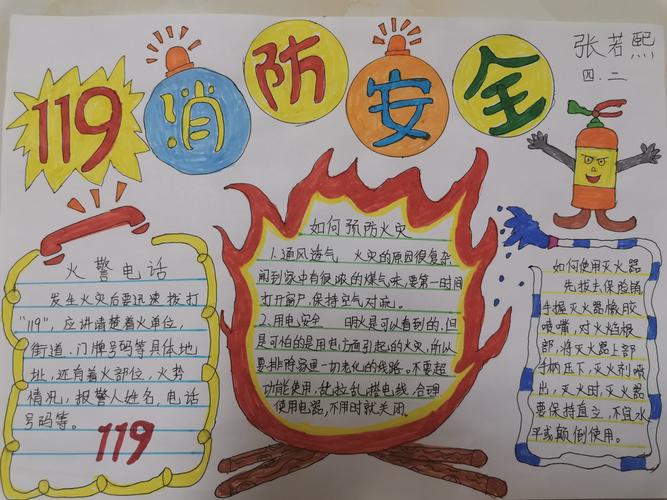 119消防安全
张若熙
四.二
火警电话
发生火灾后要迅速拨打
"119",应讲清楚着火单位,
街道、门牌号码等具体地
址,还有着火部位,火势
情况,报警人姓名,电话
号码等。
119
如何预防火灾
1.通风透气 火灾的原因很复杂
闻到家中有很浓的煤气味,要第一时间
打开窗户,保持空气对疏。
2.用电安全 明火是可以看到的,但
是可怕的是用电方面引起的火灾,所以
要排除家里一切老化的线路,不要超
功能使用,乱拉乱搭电线,合理
使用电器,不用时就关闭。
如何使用灭火器
先拔去保险销
手握灭火器橡胶
喷嘴,对火焰根
部,将灭火器上部
手柄压下,灭火剂喷
出,灭火时,灭火器
要保持直立,不宜水
平或颠倒使用。